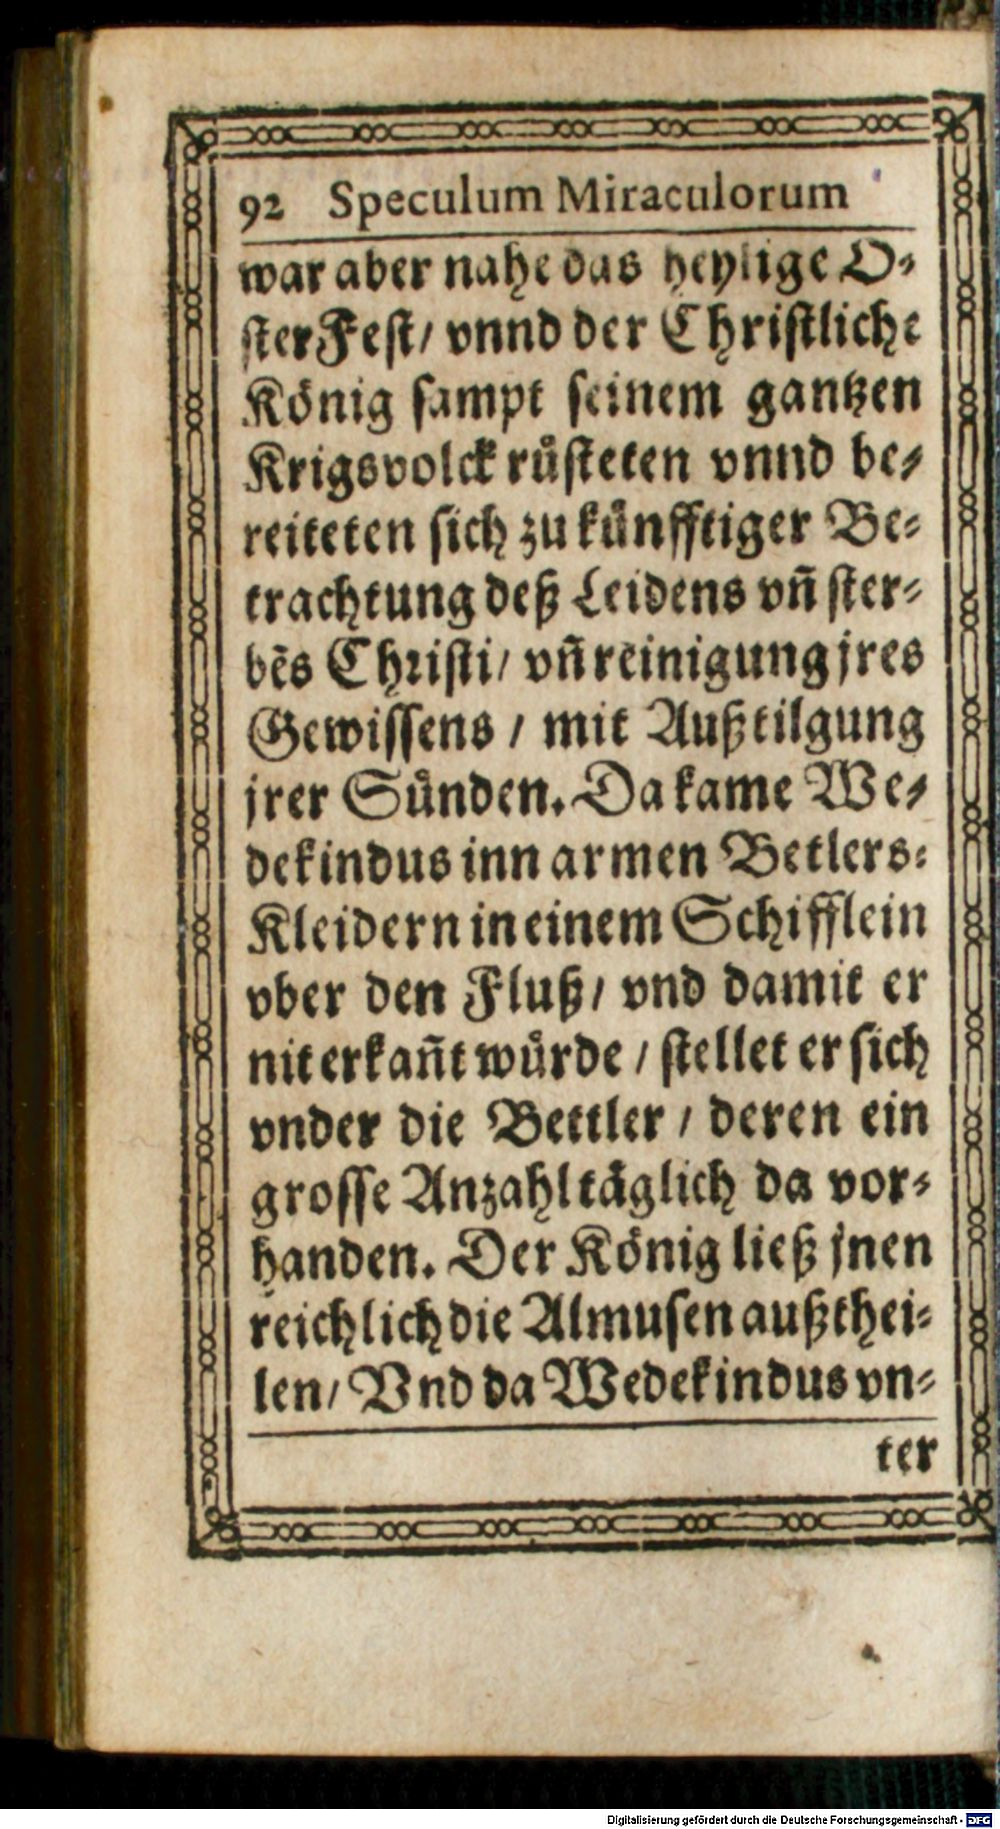 92 Speculum Miraculorum
war aber nahe das heylige O⸗
ster Fest/ vnnd der Christliche
König sampt seinem gantzen
Krigsvolck růsteten vnnd be⸗
reiteten sich zu kůnfftiger Be⸗
trachtung deß Leidens vñ ster⸗
bēs Christi/ vñ reinigung jres
Gewissens / mit Außtilgung
jrer Sůnden. Da kame We⸗
dekindus inn armen Betlers⸗
Kleidern in einem Schifflein
vber den Fluß/ vnd damit er
nit erkañt wůrde / stellet er sich
vnder die Bettler / deren ein
grosse Anzahl täglich da vor⸗
handen. Der König ließ jnen
reichlich die Almusen außthei⸗
len/ Vnd da Wedekindus vn⸗
ter
Digitalisierung gefördert durch die Deutsche Forschungsgemeinschaft - DFG